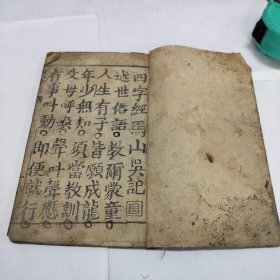 四字經爲山吳記圓
述世俗語教爾蒙童
人生有子皆願成龍
年少無知須當教訓
父母呼喚聲叫聲應
有事叫動即便就行